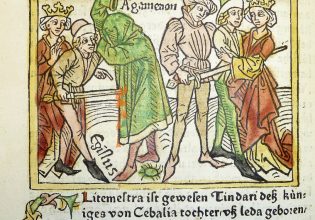 Agamenon
Egistus
Litemestra ist gewesen Tindari deß kün⸗
iges von Cebalia tochter/vß leda geboren